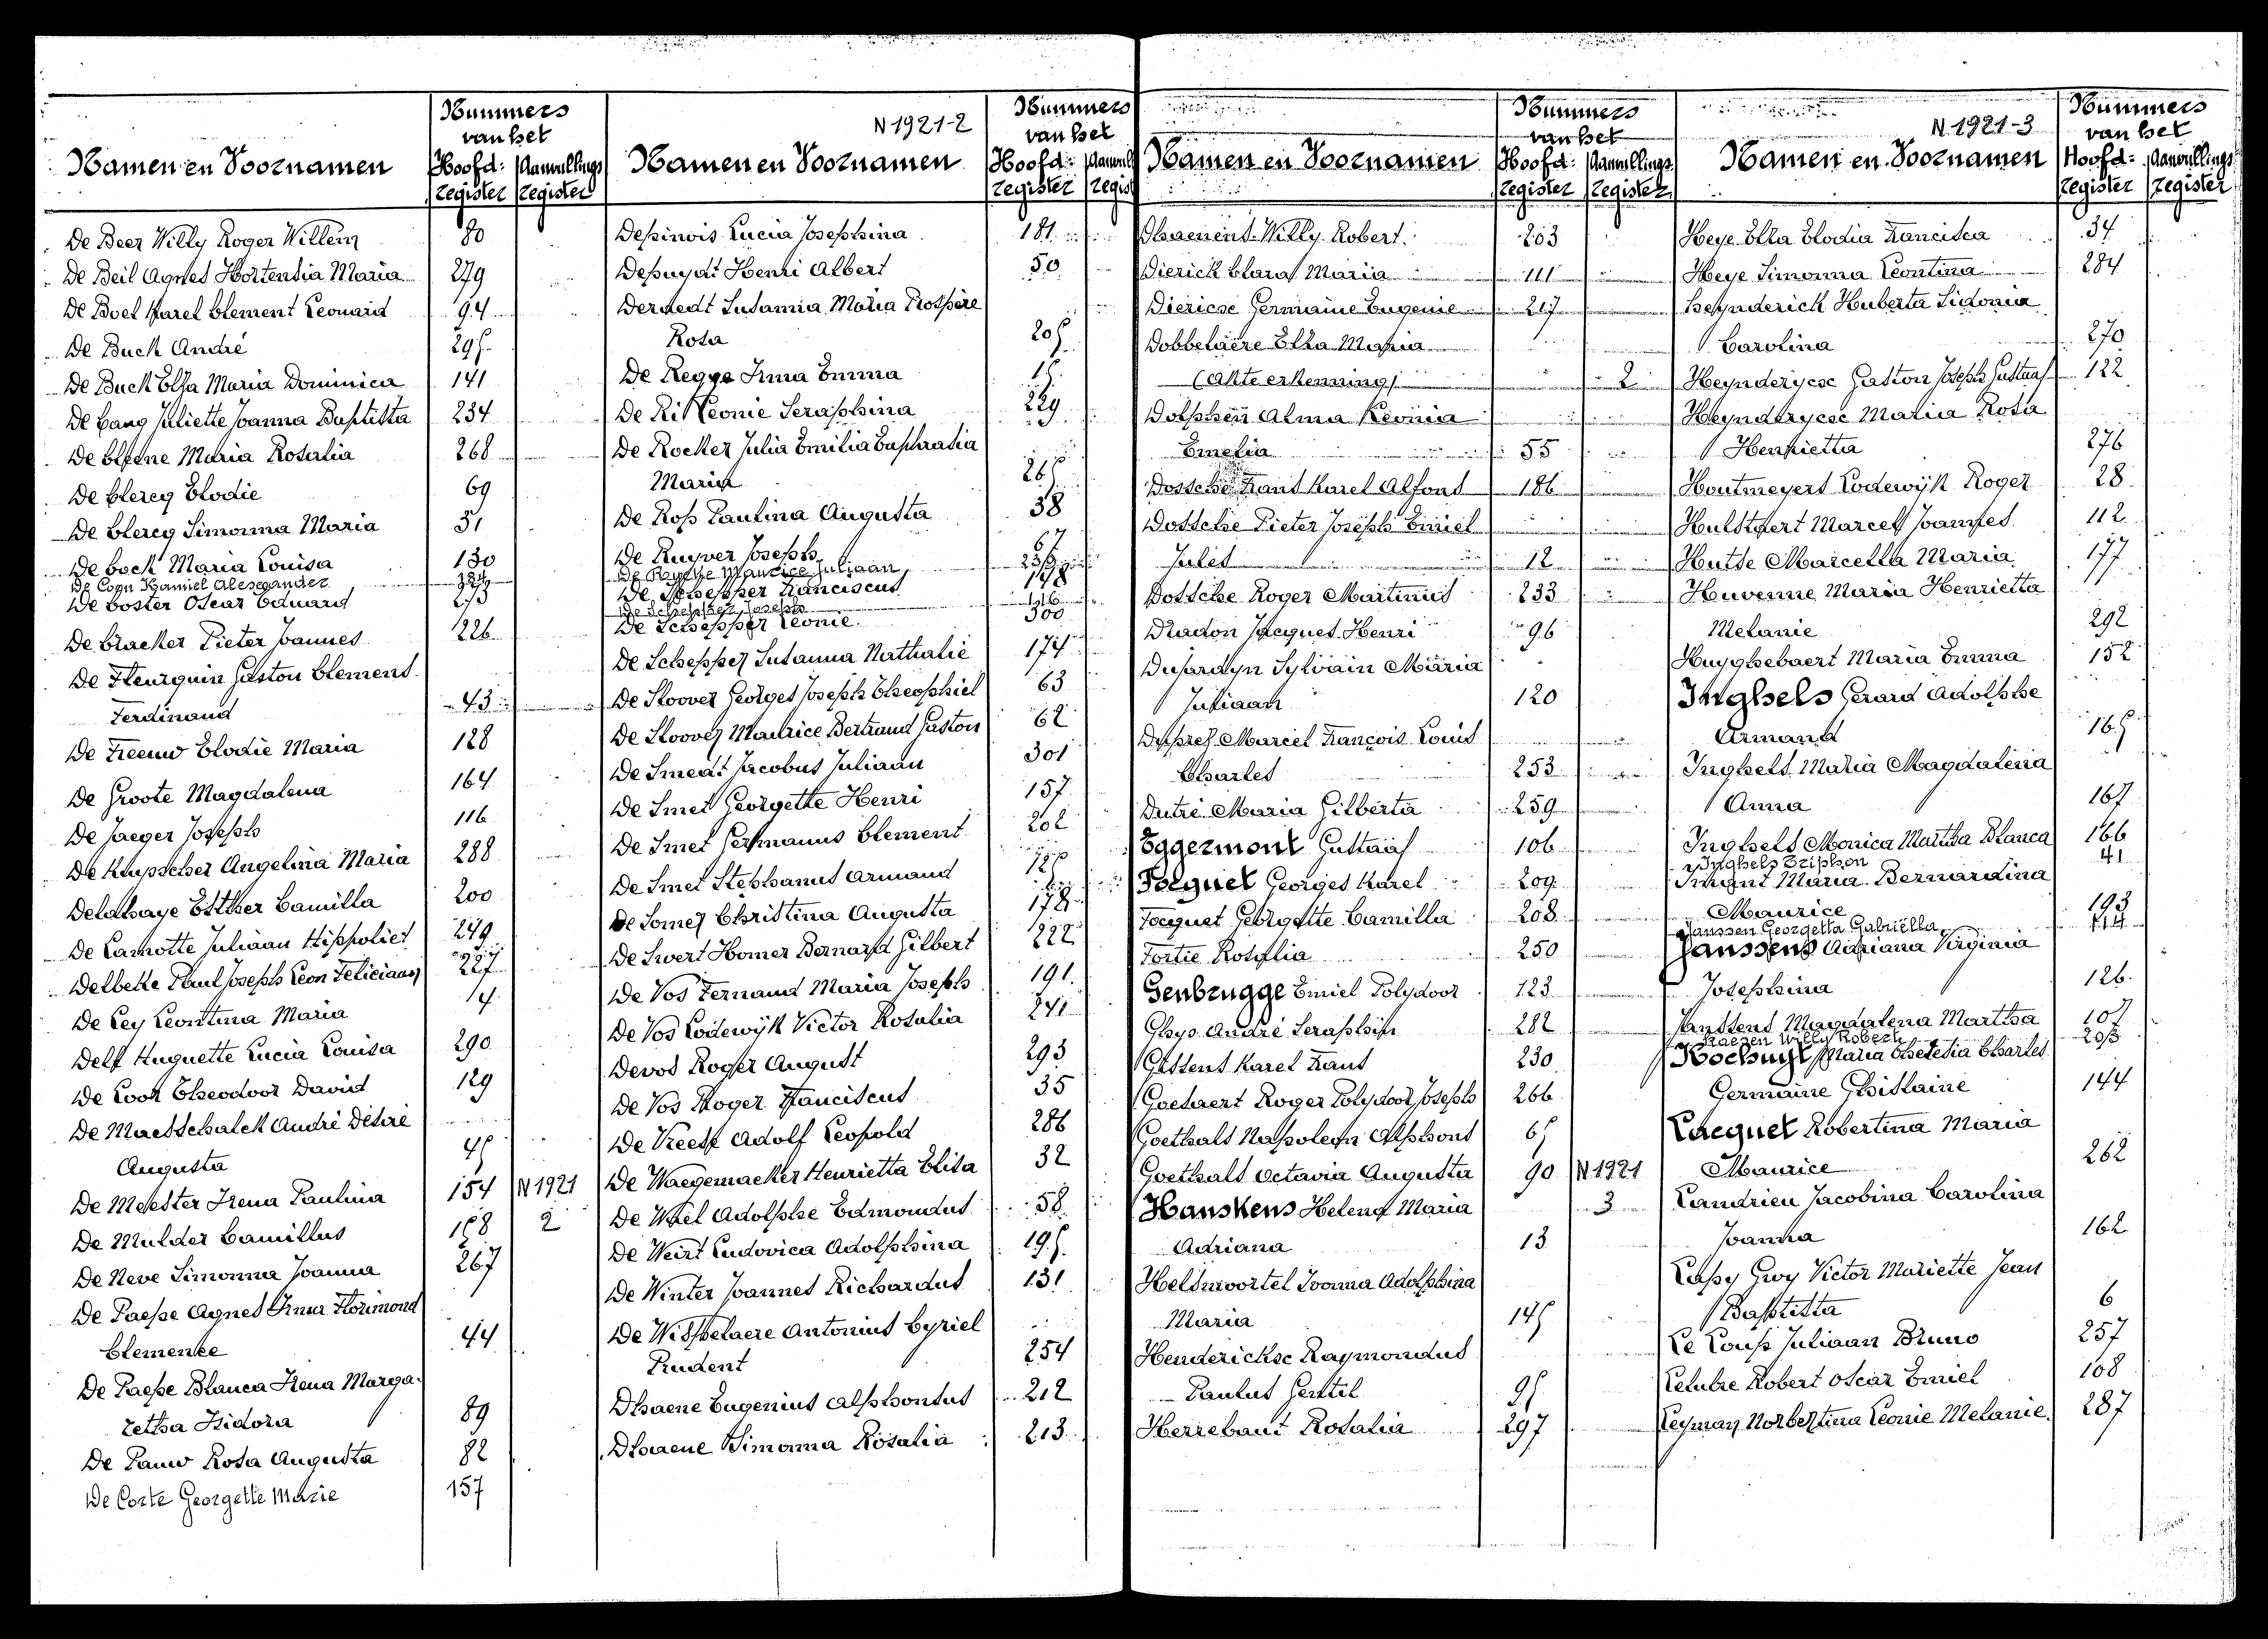 Nummers
van het
Namen en Voornamen Hoofd: Aanvullings
register register
De Beer Willy Roger Willem 80
De Beil Agnes Hortensia Maria 279
De Boel Karel Clement Leonard 94
De Buck André 295
De Buck Elsa Maria Dominica 141
De Cang Juliette Joanna Baptista 234
De Clerie Maria Rosalia 268
De Clercq Elodie 69
De Clercq Simonna Maria 31
De Cock Maria Louisa 130
De Cogn Kamiel Alesegander
De Coster Oscar Eduard 273
De Cracker Pieter Joannes 226
De Fleurquin Gaston Clement
Ferdinand 43
De Freeuw Elodie Maria 128
De Groote Magdalena 164
De Jaeger Joseph 116
De Kuysscher Angelina Maria 288
Delahaye Esther Camilla 200
De Lamotte Juliaan Hippoliet 249
Delbeke Paul Joseph Leon Feliciaan 227
De Ley Leontina Maria 14
Delf Huguette Lucia Louisa 290
De Loor Theodoor David 129
De Maesschalck André Désiré
Augusta 45
De Meester Irena Paulina 154 N 1921
De Mulder Camillus 158 2
De Neve Simonna Joanna 267
De Paepe Agnes Irma Florimond
Clemence 44
De Paepe Blanca Irena Marga-
retha Isidora 89
De Pauw Rosa Augusta 82
De Corte Georgette Marie 157
N 1921-2
Nummers
van het
Namen en Voornamen Hoofd: Aanvull
register regist
Depinois Lucia Josephina 181
Depuydt Henri Albert 50
Dermedt Susanna Maria Prospère
Rosa 205
De Regge Irma Emma 15
De Ri Leonie Seraphina 229
De Rocker Julia Emilia Euphrasia
Maria 265
De Rop Paulina Augusta 38
De Ruyver Joseph 67
De Ruyske Maurice Juliaan
De Schepper Franciscus 178
De Schepper Joseph 116
De Schepper Leonie 300
De Schepper Susanna Nathalie 174
De Sloover Georges Joseph Theophiel 63
De Sloover Maurice Bertrand Gaston 62
De Smedt Jacobus Juliaan 301
De Smet Georgette Henri 157
De Smet Germanus Clement 202
De Smet Stephanus Armand 125
De Somer Christina Augusta 178
De Swert Homer Bernard Gilbert 222
De Vos Fernand Maria Joseph 191
De Vos Lodewijk Victor Rosalia 241
Devos Roger August 293
De Vos Roger Franciscus 35
De Vreese Adolf Leopold 286
De Waegemacker Henrietta Elisa 32
De Wael Adolphe Edmondus 58
De Weirt Ludovica Adolphina 195
De Winter Joannes Richardus 131
De Wispelaere Antonius Cyriel
Prudent 254
Dhaene Eugenius Alphonsus 212
Dhaene Simonna Rosalia 213
Nummers
van het
Namen en Voornamen Hoofd: Aanvullings
register register
Dhaenens Willy Robert 203
Dierick Clara Maria 111
Diericsc Germaine Eugenie 217
Dobbelaere Elsa Maria
(akte erkenning) 2
Dolphen Alma Leonia
Emelia 55
Dossche Frans Karel Alfons 186
Dossche Pieter Joseph Emiel
Jules 12
Dossche Roger Martinus 233
Dradon Jacques Henri 96
Dujardyn Sylvain Maria
Juliaan 120
Duprez Marcel François Louis
Charles 253
Dutré Maria Gilberta 259
Eggermont Gustaaf 106
Focquet Georges Karel 209
Focquet Georgette Camilla 208
Fortie Rosalia 250
Genbrugge Emiel Polydoor 123
Ghys André Seraphin 282
Gissens Karel Frans 230
Goethaert Roger Polydoor Joseph 266
Goethals Napoleon Alphons 65
Goethals Octavia Augusta 90 N 1921
Hanskens Helena Maria 3
Adriana 13
Helsmoortel Ivonna Adolphina
Maria 145
Henderickse Raymondus
Paulus Gentil 95
Herrebaut Rosalia 297
N 1921-3
Nummers
van het
Namen en Voornamen Hoofd: Aanvullings
register register
Heye Elsa Elodia Francisca 34
Heye Simonna Leontina 284
Heynderick Huberta Sidonia
Carolina 270
Heynderycsc Gaston Joseph Gustaaf 122
Heynderycsc Maria Rosa
Henrietta 276
Houtmeyers Lodewijk Roger 28
Hulstaert Marcel Joannes 112
Hutse Marcella Maria 177
Huvenne Maria Henrietta
Melanie 292
Huyghebaert Maria Emma 152
Inghels Gerard Adolphe
Armand 165
Inghels Maria Magdalena
Anna 167
Inghels Monica Martha Blanca 166
Inghels Triphon 41
Imant Maria Bernardina
Maurice 193
Janssen Georgetta Gabriella
Janssens Adriana Virginia
Josephina 126
Janssens Magdalena Martha 107
Kaegen Willy Robert
Kochuyt Maria Theresia Charles
Germaine Ghislaine 144
Lacquet Robertina Maria
Maurice 262
Landrieu Jacobina Carolina
Joanna 162
Lapy Gwy Victor Mariette Jean
Baptista 6
Le Loup Juliaan Bruno 257
Lelubre Robert Oscar Emiel 108
Leyman Norbertina Leonie Melanie 287